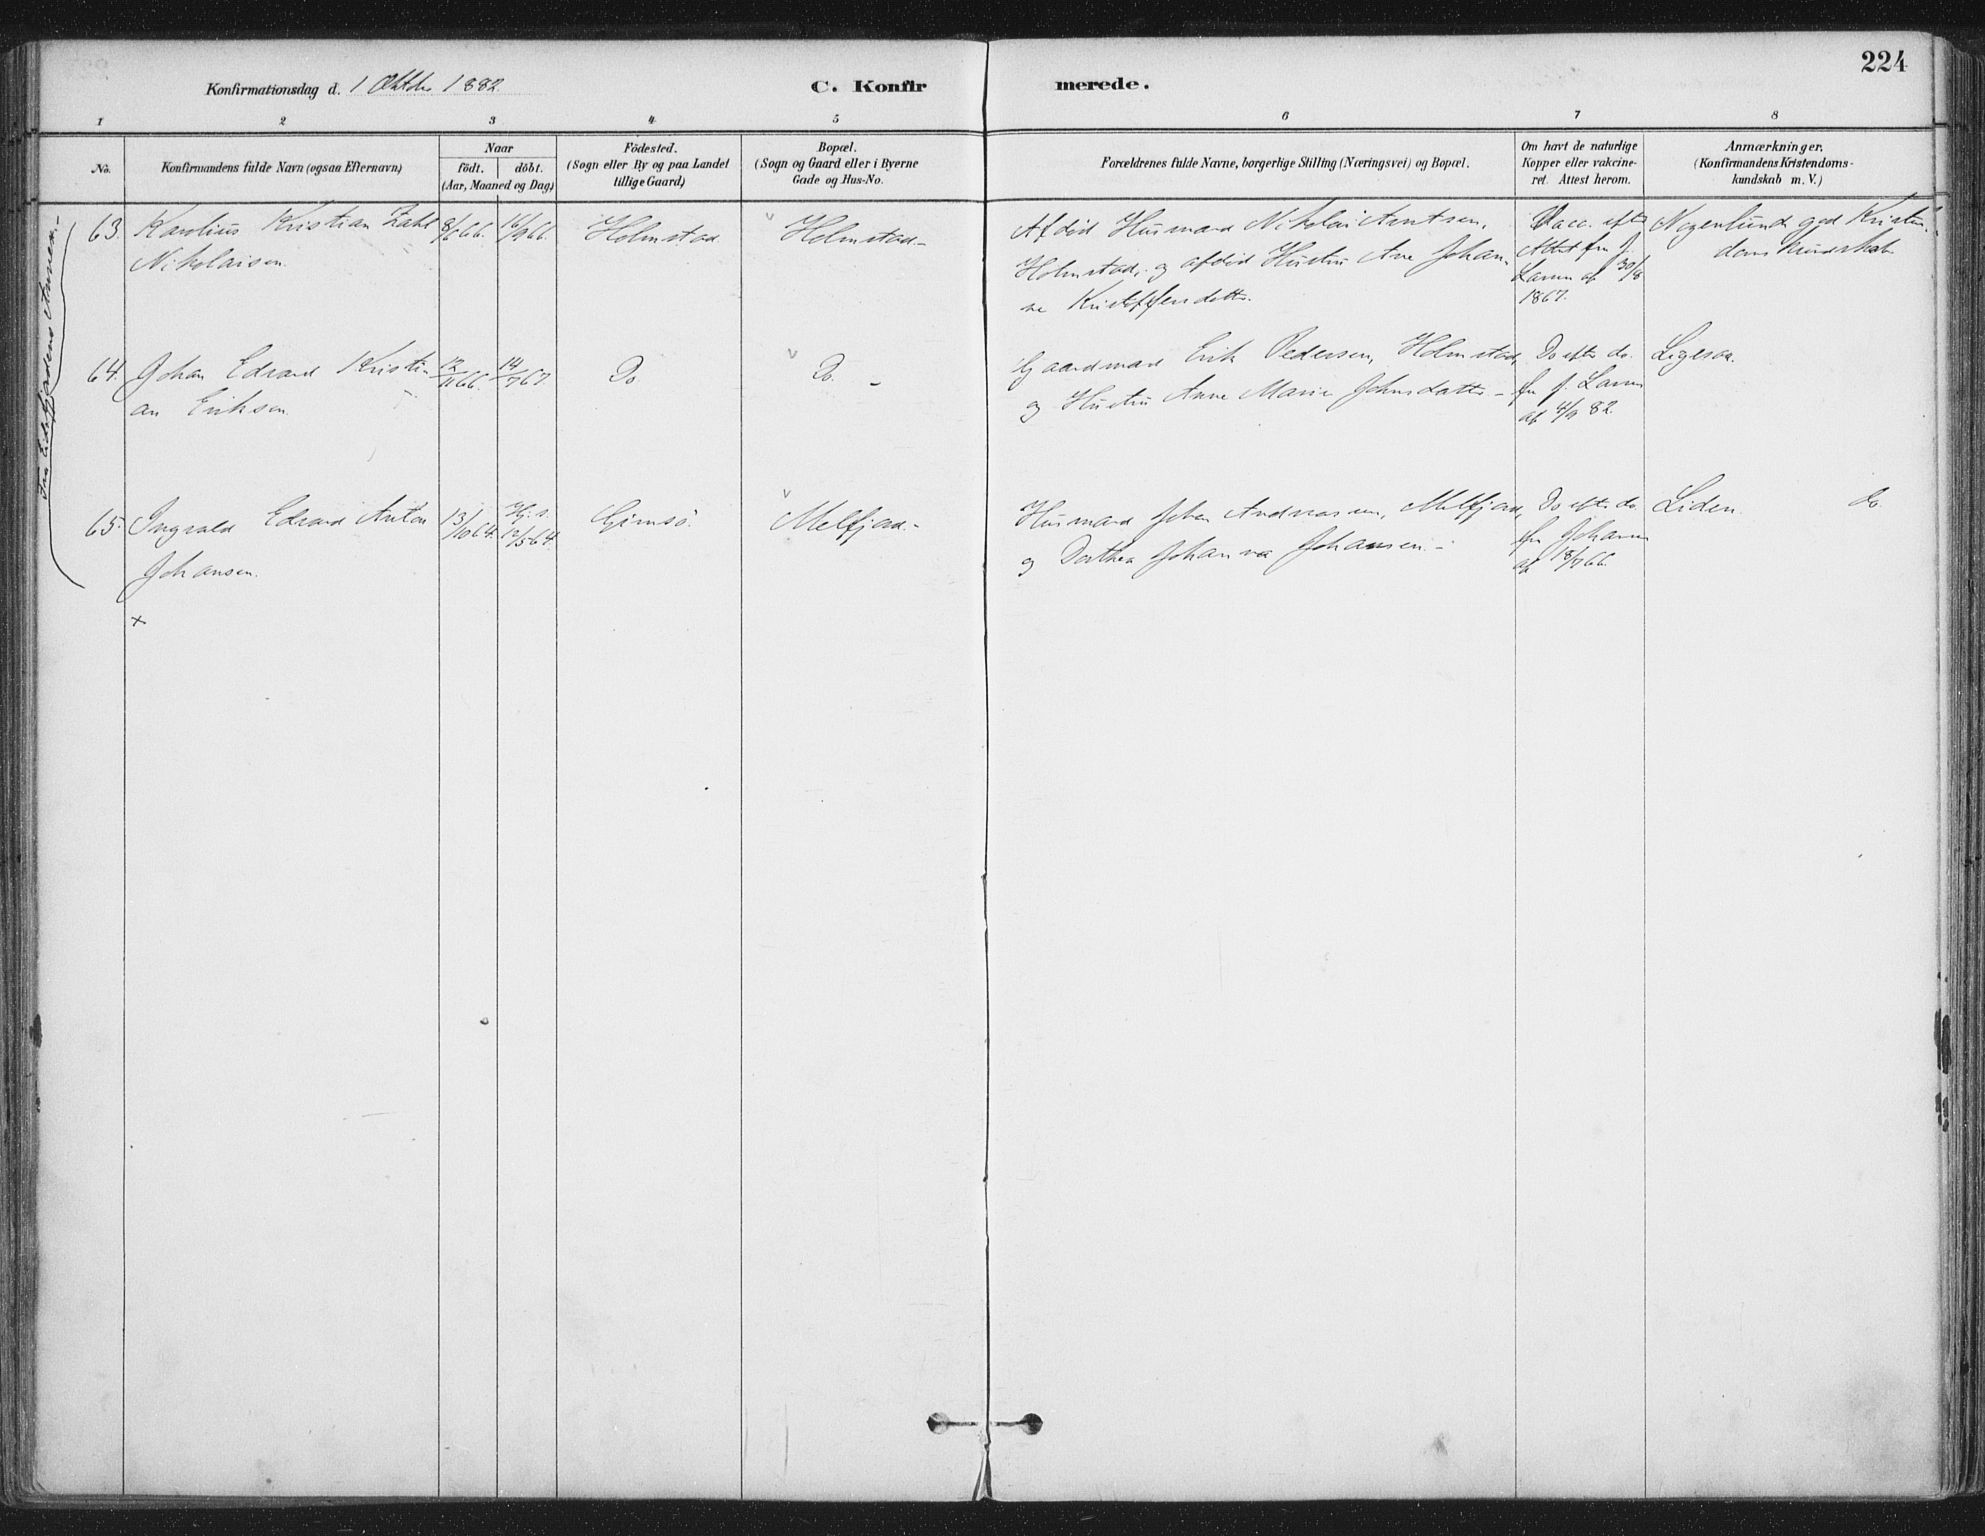 224
Konfirmationsdag d. 1 Oktbr 1882
C. Konfirmerede.
1 2 3 4 5 6 7 8
No.
Konfirmandens fulde Navn (ogsaa Efternavn)
Naar
födt. döbt.
(Aar, Maaned og Dag)
Födested.
(Sogn eller By og paa Landet
tillige Gaard)
Bopæl.
(Sogn og Gaard eller i Byerne
Gade og Hus-No.
Forældrenes fulde Navne, borgerlige Stilling (Næringsvei) og Bopæl.
Om havt de naturlige
Kopper eller vakcine-
ret. Attest herom.
Anmærkninger.
(Konfirmandens Kristendoms-
kundskab m. V.)
63. Karolius Kristian Zahl
Nikolaisen.
8/6 66. 16/9 66.
Holmstad
Holmstad-
Afdöd Husmand Nikolai Arntsen,
Holmstad, og afdöd Hustru Ane Johan-
ne Kristoffersdatter.
Vacc. efter
Attest fra J.
Larsen af 30/8
1867.
Nogenlunde god Kristen-
domskundskab
64. Johan Edvard Kristi-
an Eriksen.
12/11 66. 14/7 67
Do
Do. -
Gaardmand Erik Pedersen, Holmstad,
og Hustru Anne Marie Johnsdatter -
Do efter do.
fra J. Larsen
af 4/9 82.
Ligesaa.
65. Ingvald Edvard Anton
Johansen.
13/10 64. Hj. d.
Gimsö.
Melfjord.-
Husmand Johan Andreassen, Melfjord,
og Dorthea Johanna Johansen.-
Do efter do.
fra Johansen
af 18/7 66.
Liden do.
x